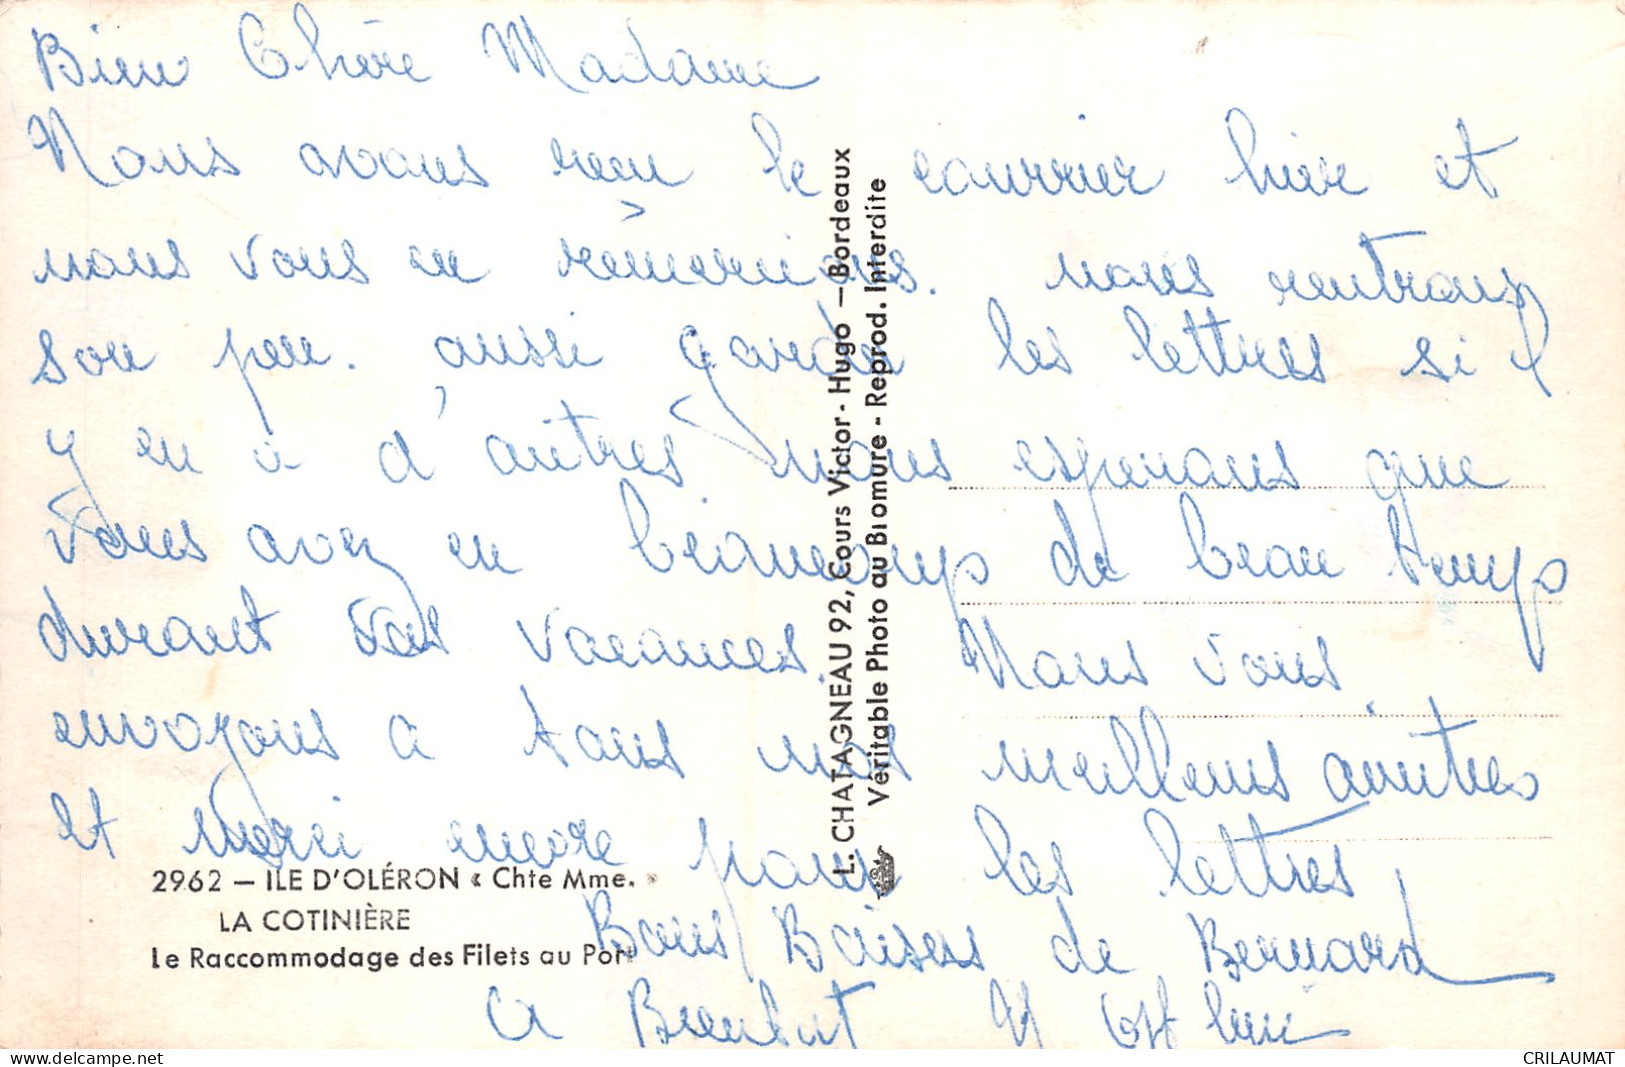 Bien Chère Madame
Nous avons reçu le courrier hier et
nous vous en remercions. nous rentrons
sou peu. aussi garder les lettres si il
y en a d'autres nous esperons que
vous avez eu beaucoup de beau temps
durant vos vacances. Nous vous
envoyons a tous nos meilleurs amities
et merci encore pour les lettres
Bons Baisers de Bernard
a Bientot
2962 — ILE D'OLÉRON « Chte Mme. »
LA COTINIÈRE
Le Raccommodage des Filets au Port
L. CHATAGNEAU 92, Cours Victor-Hugo — Bordeaux
Véritable Photo au Bromure - Reprod. Interdite
CRILAUMAT